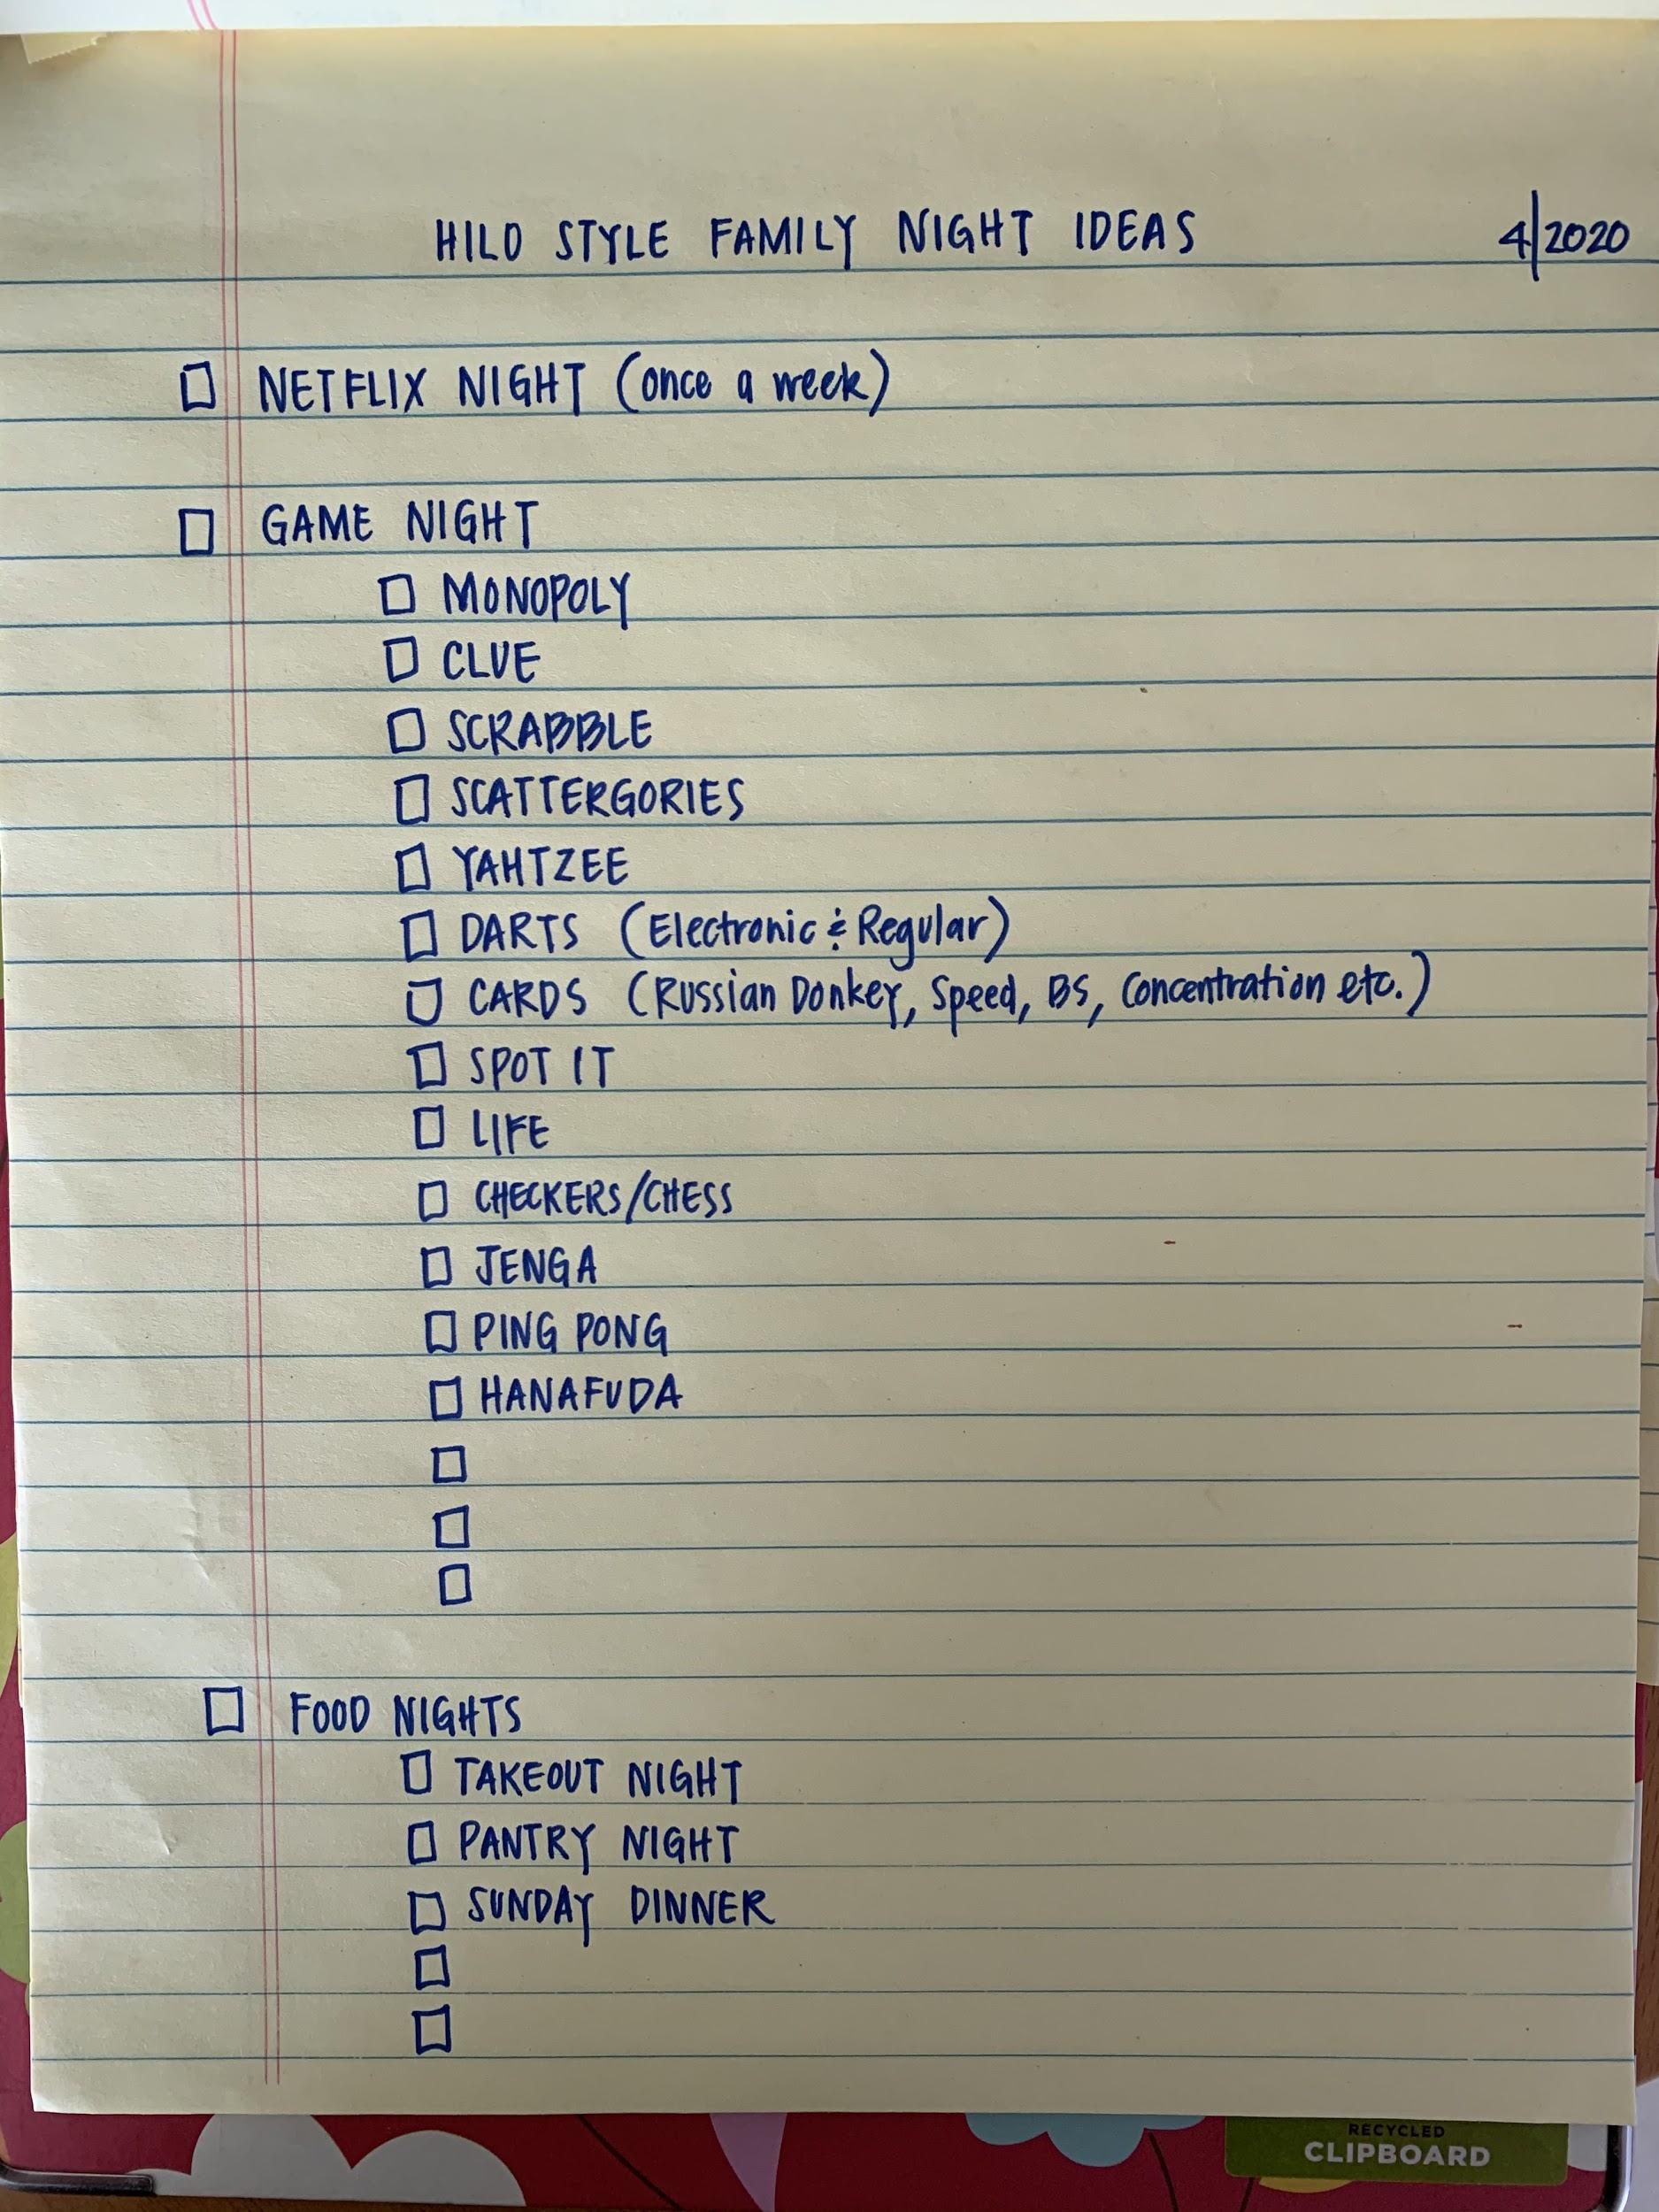 HILO STYLE FAMILY NIGHT IDEAS 4/2020
NETFLIX NIGHT (once a week)
GAME NIGHT
MONOPOLY
CLUE
SCRABBLE
SCATTERGORIES
YAHTZEE
DARTS (Electronic & Regular)
CARDS (Russian Donkey, Speed, BS, Concentration etc.)
SPOT IT
LIFE
CHECKERS/CHESS
JENGA
PING PONG
HANAFUDA
FOOD NIGHTS
TAKEOUT NIGHT
PANTRY NIGHT
SUNDAY DINNER
RECYCLED
CLIPBOARD